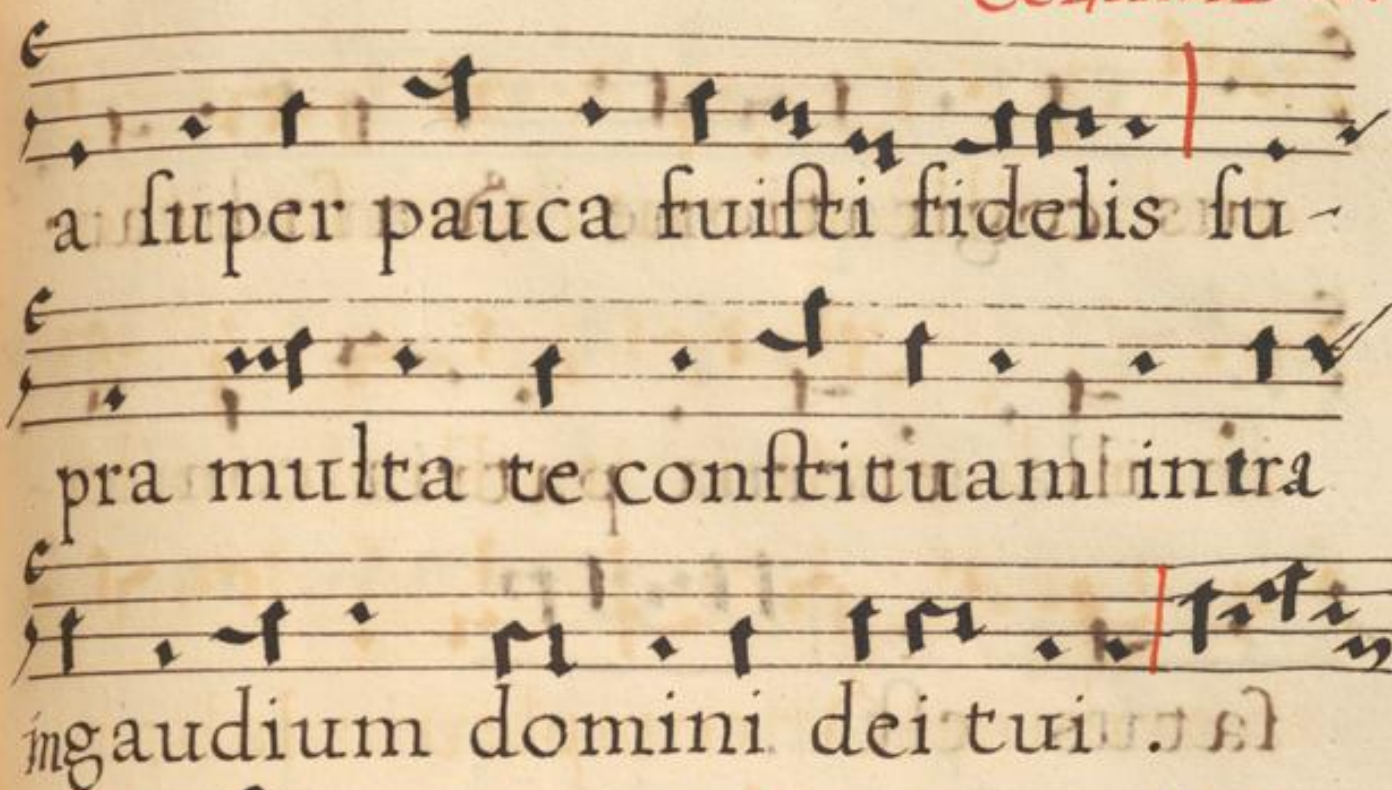 a ſuper pauca fuiſti fidelis ſu-
pra multa te conſtituam intra
in gaudium domini dei tui.